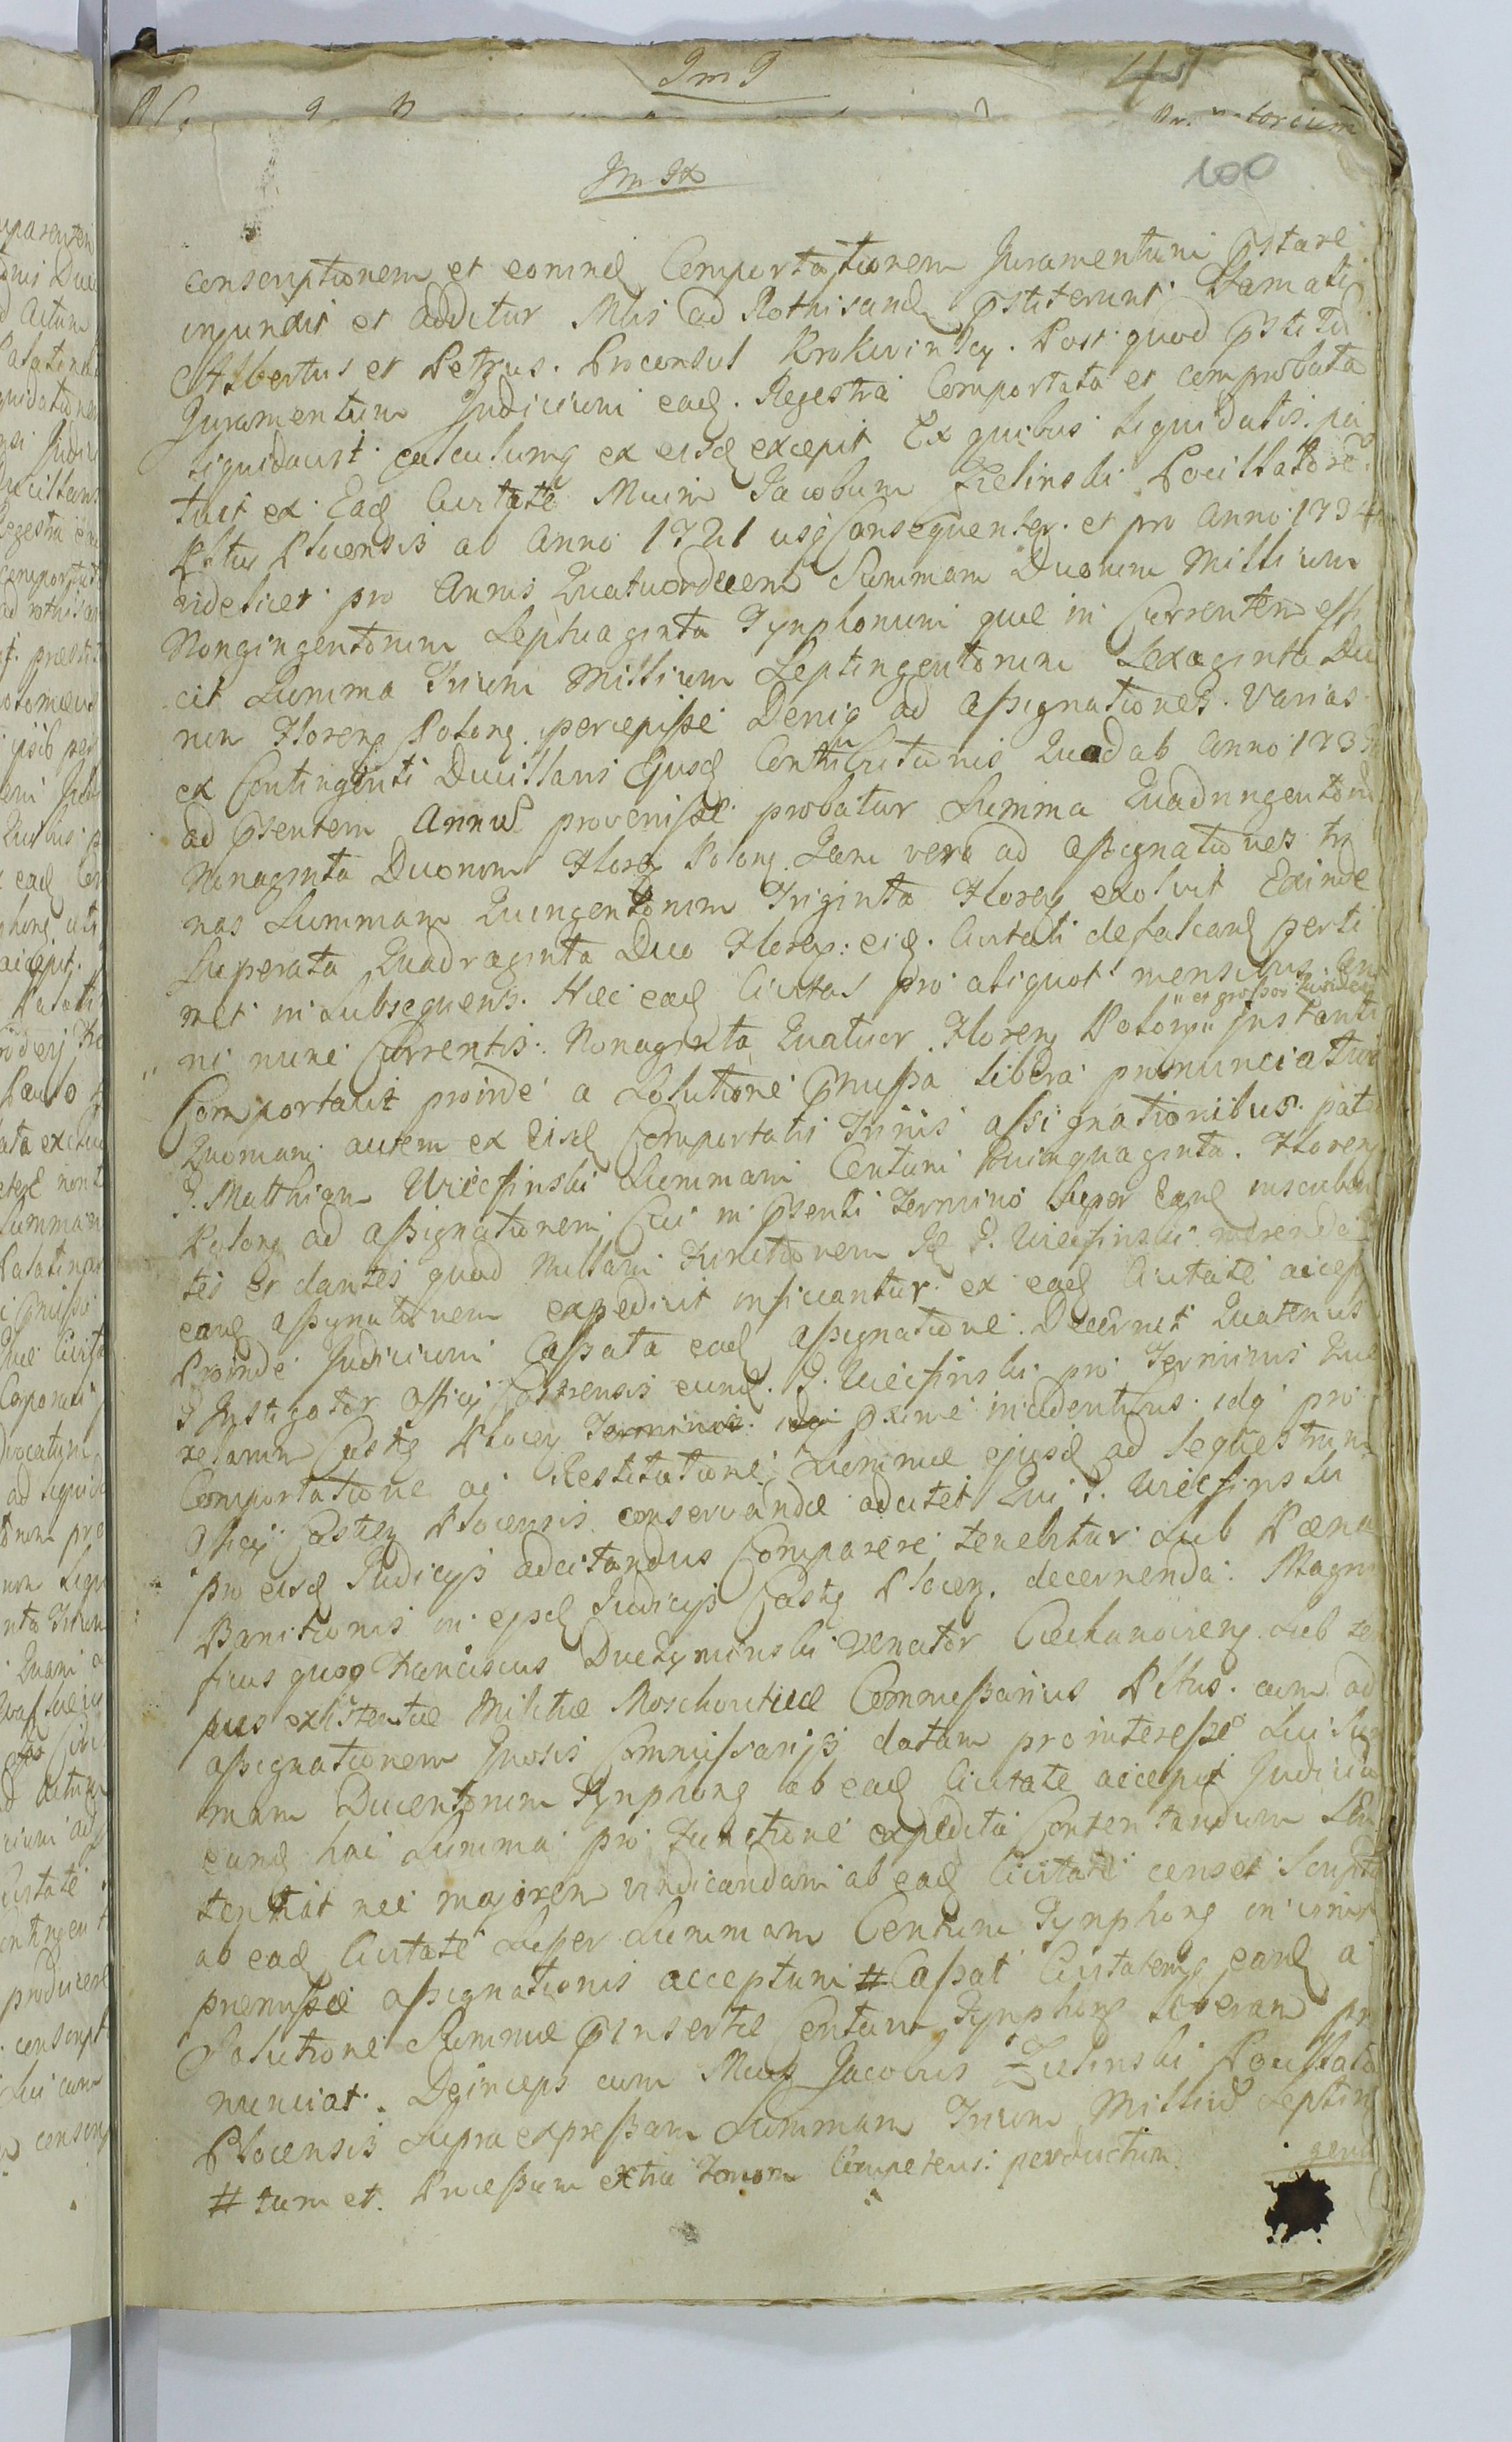 Im I
41
100
conscriptionem et eorund Comportationem Juramentum pstare
injunxit et additur Mlis ad Rothisand pstiterunt Famati
Albertus et Petrus Proconsul Krokwinscy. Post quod pstitu
Juramentum Judicium ead. Regestra Comportata et comprobata
liquidavit calculumq ex eisd excepit Ex quibus liquidatis pa
tuit ex Ead Civitate Mum Jacobum Zielinski Pocillatore
Pltus Plocensis ab Anno 1721 usq Consequenter et pro Anno 1734
videlicet pro Annis Quatuordecem Summam Duorum Millium
Nongingentorum Septuaginta Tynphonum que in Currentem effi
cit Summa Trium Millium Septingentorum Sexaginta Du
rum Floreng Polong percepisse Deniq ad assignationes varias
ex Contingenti Ducillaris Ejusd Contributionis Quad ab Anno 173
ad psentem Annu provenisse probatur Summa Quadringentoru
Nonaginta Duorum Floreg Polong Jam vero ad assignationes tri
nas Summam Quingentorum Triginta Floreg exolvit Exinde
Superata Quadraginta Duo Floreg: eid. Civitati defalcand perti
net in Subsequens. Hec ead Civitas pro aliquot mensibus An
ni nunc Currentis Nonaginta Quatuor Floreng Polong " et grossor " Instanti
Comportavit proinde a Solutione pmissa libera pronunciatur
Quoniam autem ex Eisd Comportatis Trinis assignationibus pate
P. Matthiam Wiecfinski Summam Centum Quinquaginta Floreng
Polong ad assignationem Cui in psenti Termino Super Eand inscuban
tes et dantes quod Nullam Functionem Id P. Wiecfinski
eand assignationem expedivit inficiantur ex ead Civitate accep
Proinde Judicium Cassata ead assignatione Decernit Quatenus
P Instigator Officij Castrensis eund. P. Wiecfinski pro Terminis Que
relarum Castg Plocen Terminis prime incidentibus idq pro
Comportatione ac Restitutione Summe ejusd ad Sequestrum
Officij Castren Plocensis conservande adcitet Qui P. Wiecfinski
pro eisd Judicijs adcitandus Comparere tenebitur Sub Pena
Banitionis in ejusd Judicijs Castg Plocen. decernenda. Magni
ficus quoq Franciscus Duczyminski Venator Ciechanoviens Sub tem
pus existentie Militie Moschoviticae Commissarius Pltus. cum ad
assignationem Gnosis Commissarijs datam pro interesse Sui Sum
mam Ducentorum Tynphong ab ead Civitate accepit Judicium
eund hac Summa pro Functione expedita Contentandum Sen
tentiat nec majorem vindicandam ab ead Civitate censet Scriptu
ab ead Civitate Super Summam Centum Tynphong in vim
premisse assignationis acceptum # Cassat Civitatemq eand a
Solutione Summe pinserte Centum Tynphong liberam pro
nunciat. Deinceps cum Mug Jacobus Zielinski Pocillato
Plocensis Supra expressam Summam Trium Milliu Septin
gent
# tum et Processum extra Forum Competens perductum